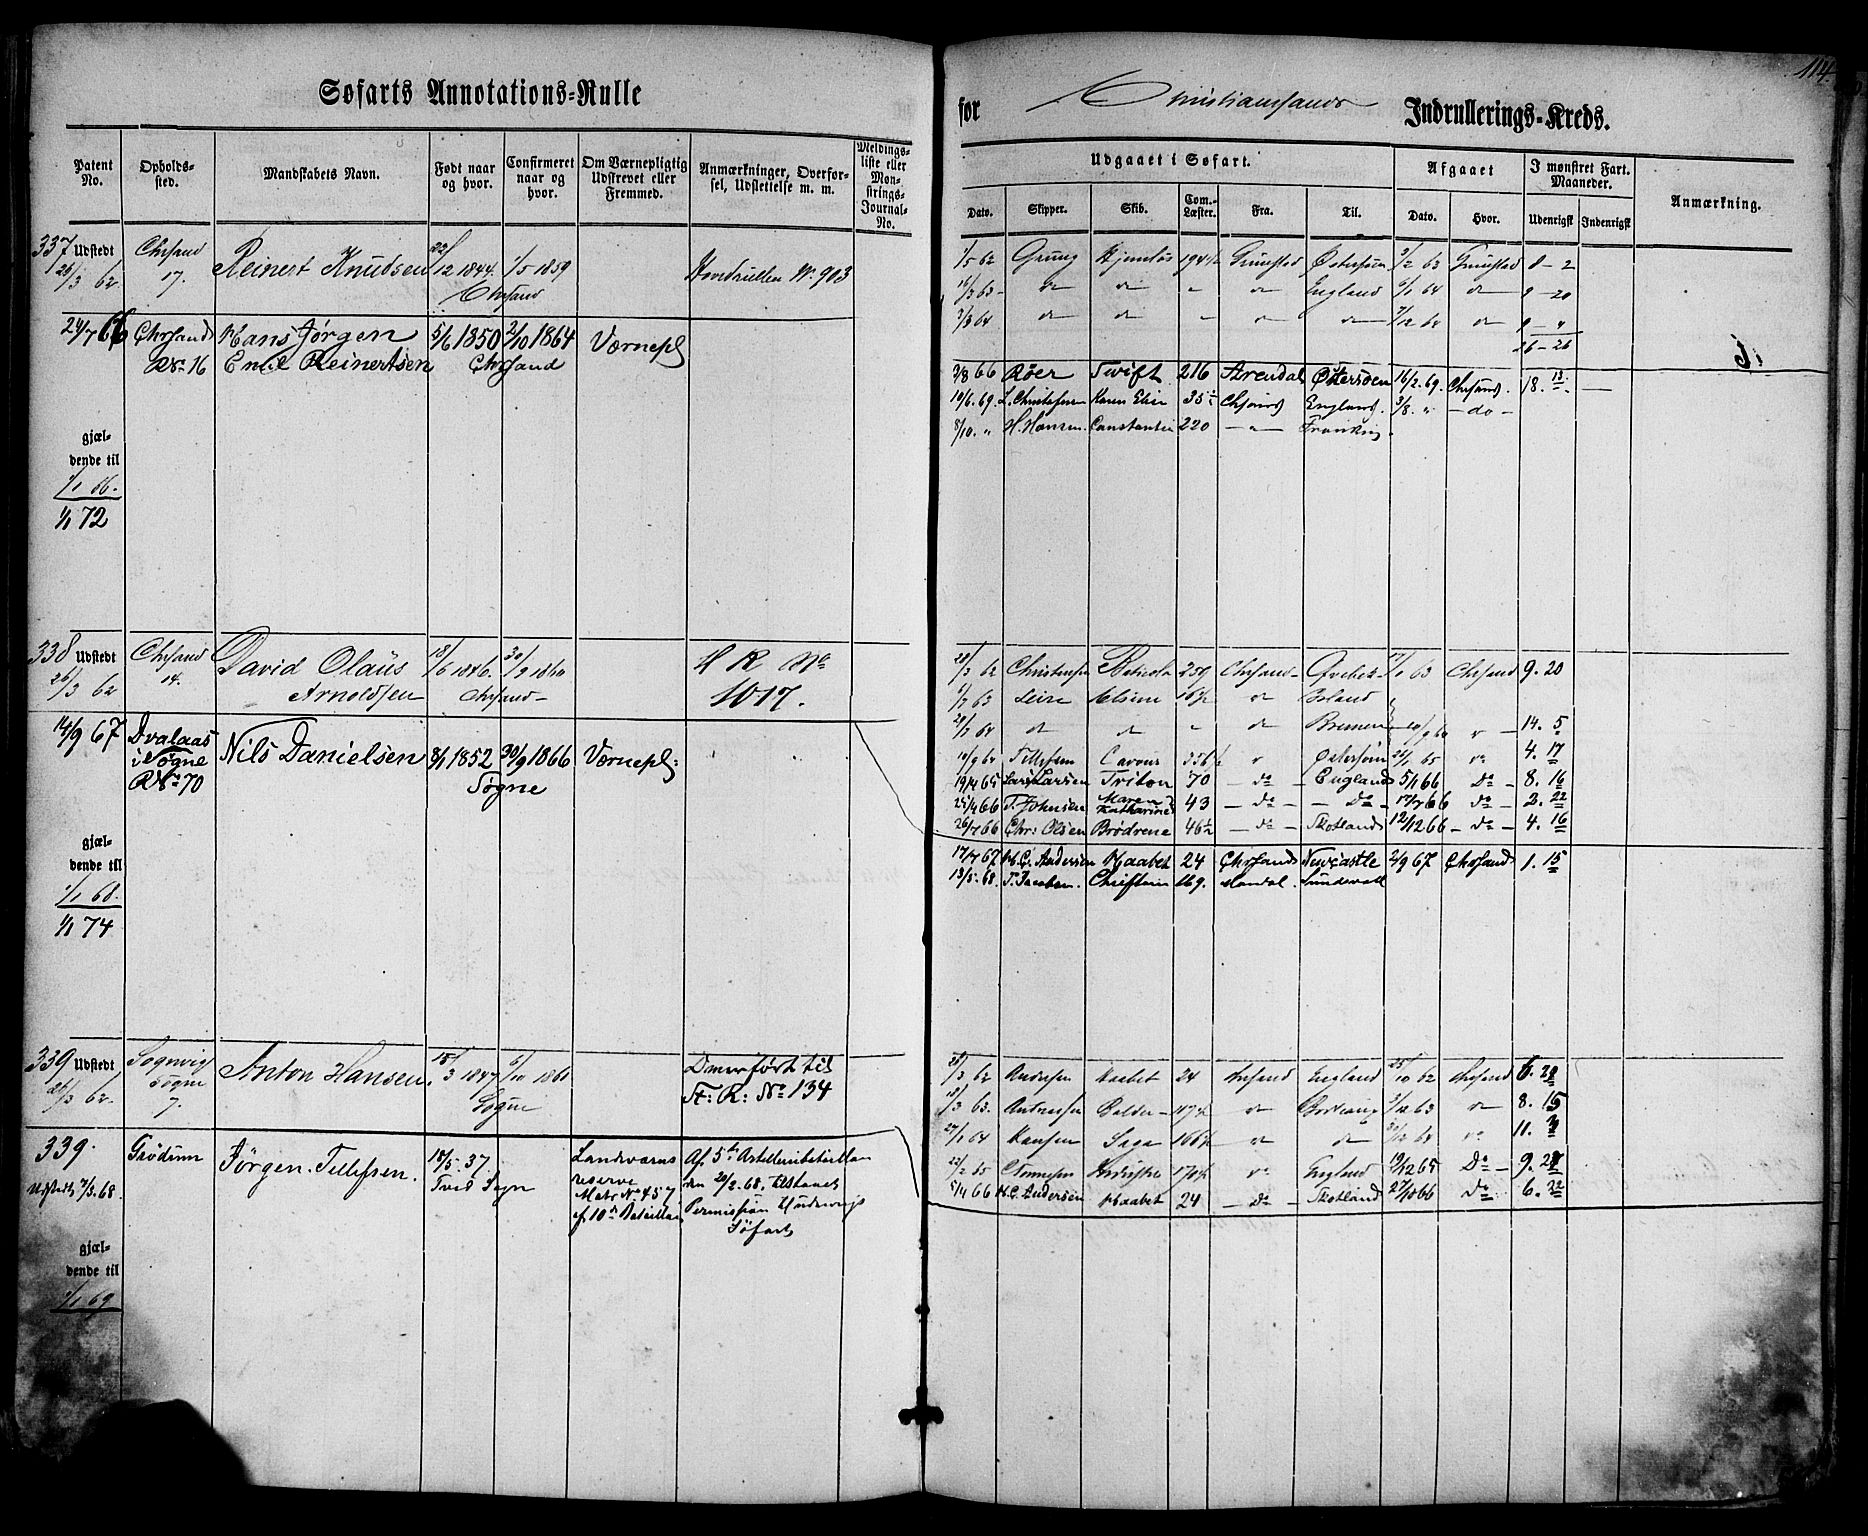 Søfarts Annotations-Rulle
for Christianssands Indrullerings-Kreds.
114.
Patent No.
Opholds-sted.
Mandskabets Navn.
Født naar og hvor.
Confirmeret naar og hvor.
Om Værnepligtig Udskrevet eller Fremmed.
Anmærkninger, Overførsel, Udslettelse m. m.
Meldings-liste eller Mønstrings-Journal-No.
Udgaaet i Søfart.
Afgaaet
I mønstret Fart. Maaneder.
Anmærkning.
Dato.
Skipper.
Skib.
Com.-Læster.
Fra.
Til.
Dato.
Hvor.
Udenrigsk
Indenrigsk
337 Udstedt 26/3 62.
Chrsand 17.
Reinert Knudsen
22/12 1844. Chrsand
1/5 1859
Hovedrullen No 903
1/5 62 Grung 194½ Grimstad Østersøen 3/2 63 Grimstad 8 - 2
16/3 63 do do " do England 6/1 64 do 9 - 20
3/3 64 do do " do do 7/12 64 do 9 - 4
26 - 26
24/7 66
Chrsand No 16
Hans Jørgen
Emil Reinertsen
5/6 1850
2/10 1864
Chrsand
Værnepl
2/8 66 Røer Swift 216 Arendal Østersøen 16/2 69. Chrsand. 18. 13.
10/6. 69. L. Christensen Karen Elise 35½ Chrsand England. 3/8. " - do -
8/10. " H. Hansen. Constantin 220 - " -
gjæl-
dende til
1/1 66.
1/1 72
338 Udstedt 26/3 62
Chrsand 14.
David Olaus
Arnoldsen
18/6 1846.
30/9 1860
Chrsand -
H R No
1017.
20/3 62 Christensen 259 Chrsand 17/1 63 Chrsand 9. 20
6/2 63
20/2 64 do do " do Bremen 14. 5
10/9 64 Tellefsen Cavour 336½ " Østersøen 24/1 65 do 4. 17
19/4 65 Lars Larsen Triton 70 - do - England 5/1 66 Do - 8. 16
25/4 66 T. Johnsen Maren Katharine 43 - do - - Do - 17/7 66 do - 2. 22
26/7 66 Chr: Olsen Brødrene 46½ - do - Skotland 12/12 66 - do - 4. 16
14/9 67
Dvalaas
i Søgne
No 70
Nils Danielsen
8/1 1852
30/9 1866
Søgne
Værnepl:
17/7 67 N. C. Andersen Haabet 24 Chrsand Newcastle 2/9 67 Chrsand 1. 15
13/5. 68. T. Jacobsen. Chieftain 169. Mandal. Sundsvall
gjæl-
dende til
1/1 68.
1/1 74
339 Udstedt 26/3 62.
Søgne 7.
Anton Hansen
15/3 1847
6/10 1861
Søgne
Overført til
St: R: No 134
28/3 62 Andersen Haabet 24 Chrsand England 25/10 62 Chrsand 6. 28
18/3 63. Andreassen Balder 3/12 63 " 8. 15
27/1 64 Hansen Saga 166½ " do do 11.
22/2 65 170½ do England 19/12 65 Do - 9. 27
5/4 66 N. C. Andersen Haabet 24 - Do - Skotland 27/10 66 Do 6. 22
339.
Udstedt 7/3. 68.
Grødum
Jørgen Tellefsen.
18/5. 37.
Tveid Sogn
Landværns
reserve
Matr No 457
af 10de Bataillon
Af 5te Artilleribataillon
den 20/2. 68. tilstaaet
Permission til udenrigs
Søfart
gjæl-
dende til
1/1 69